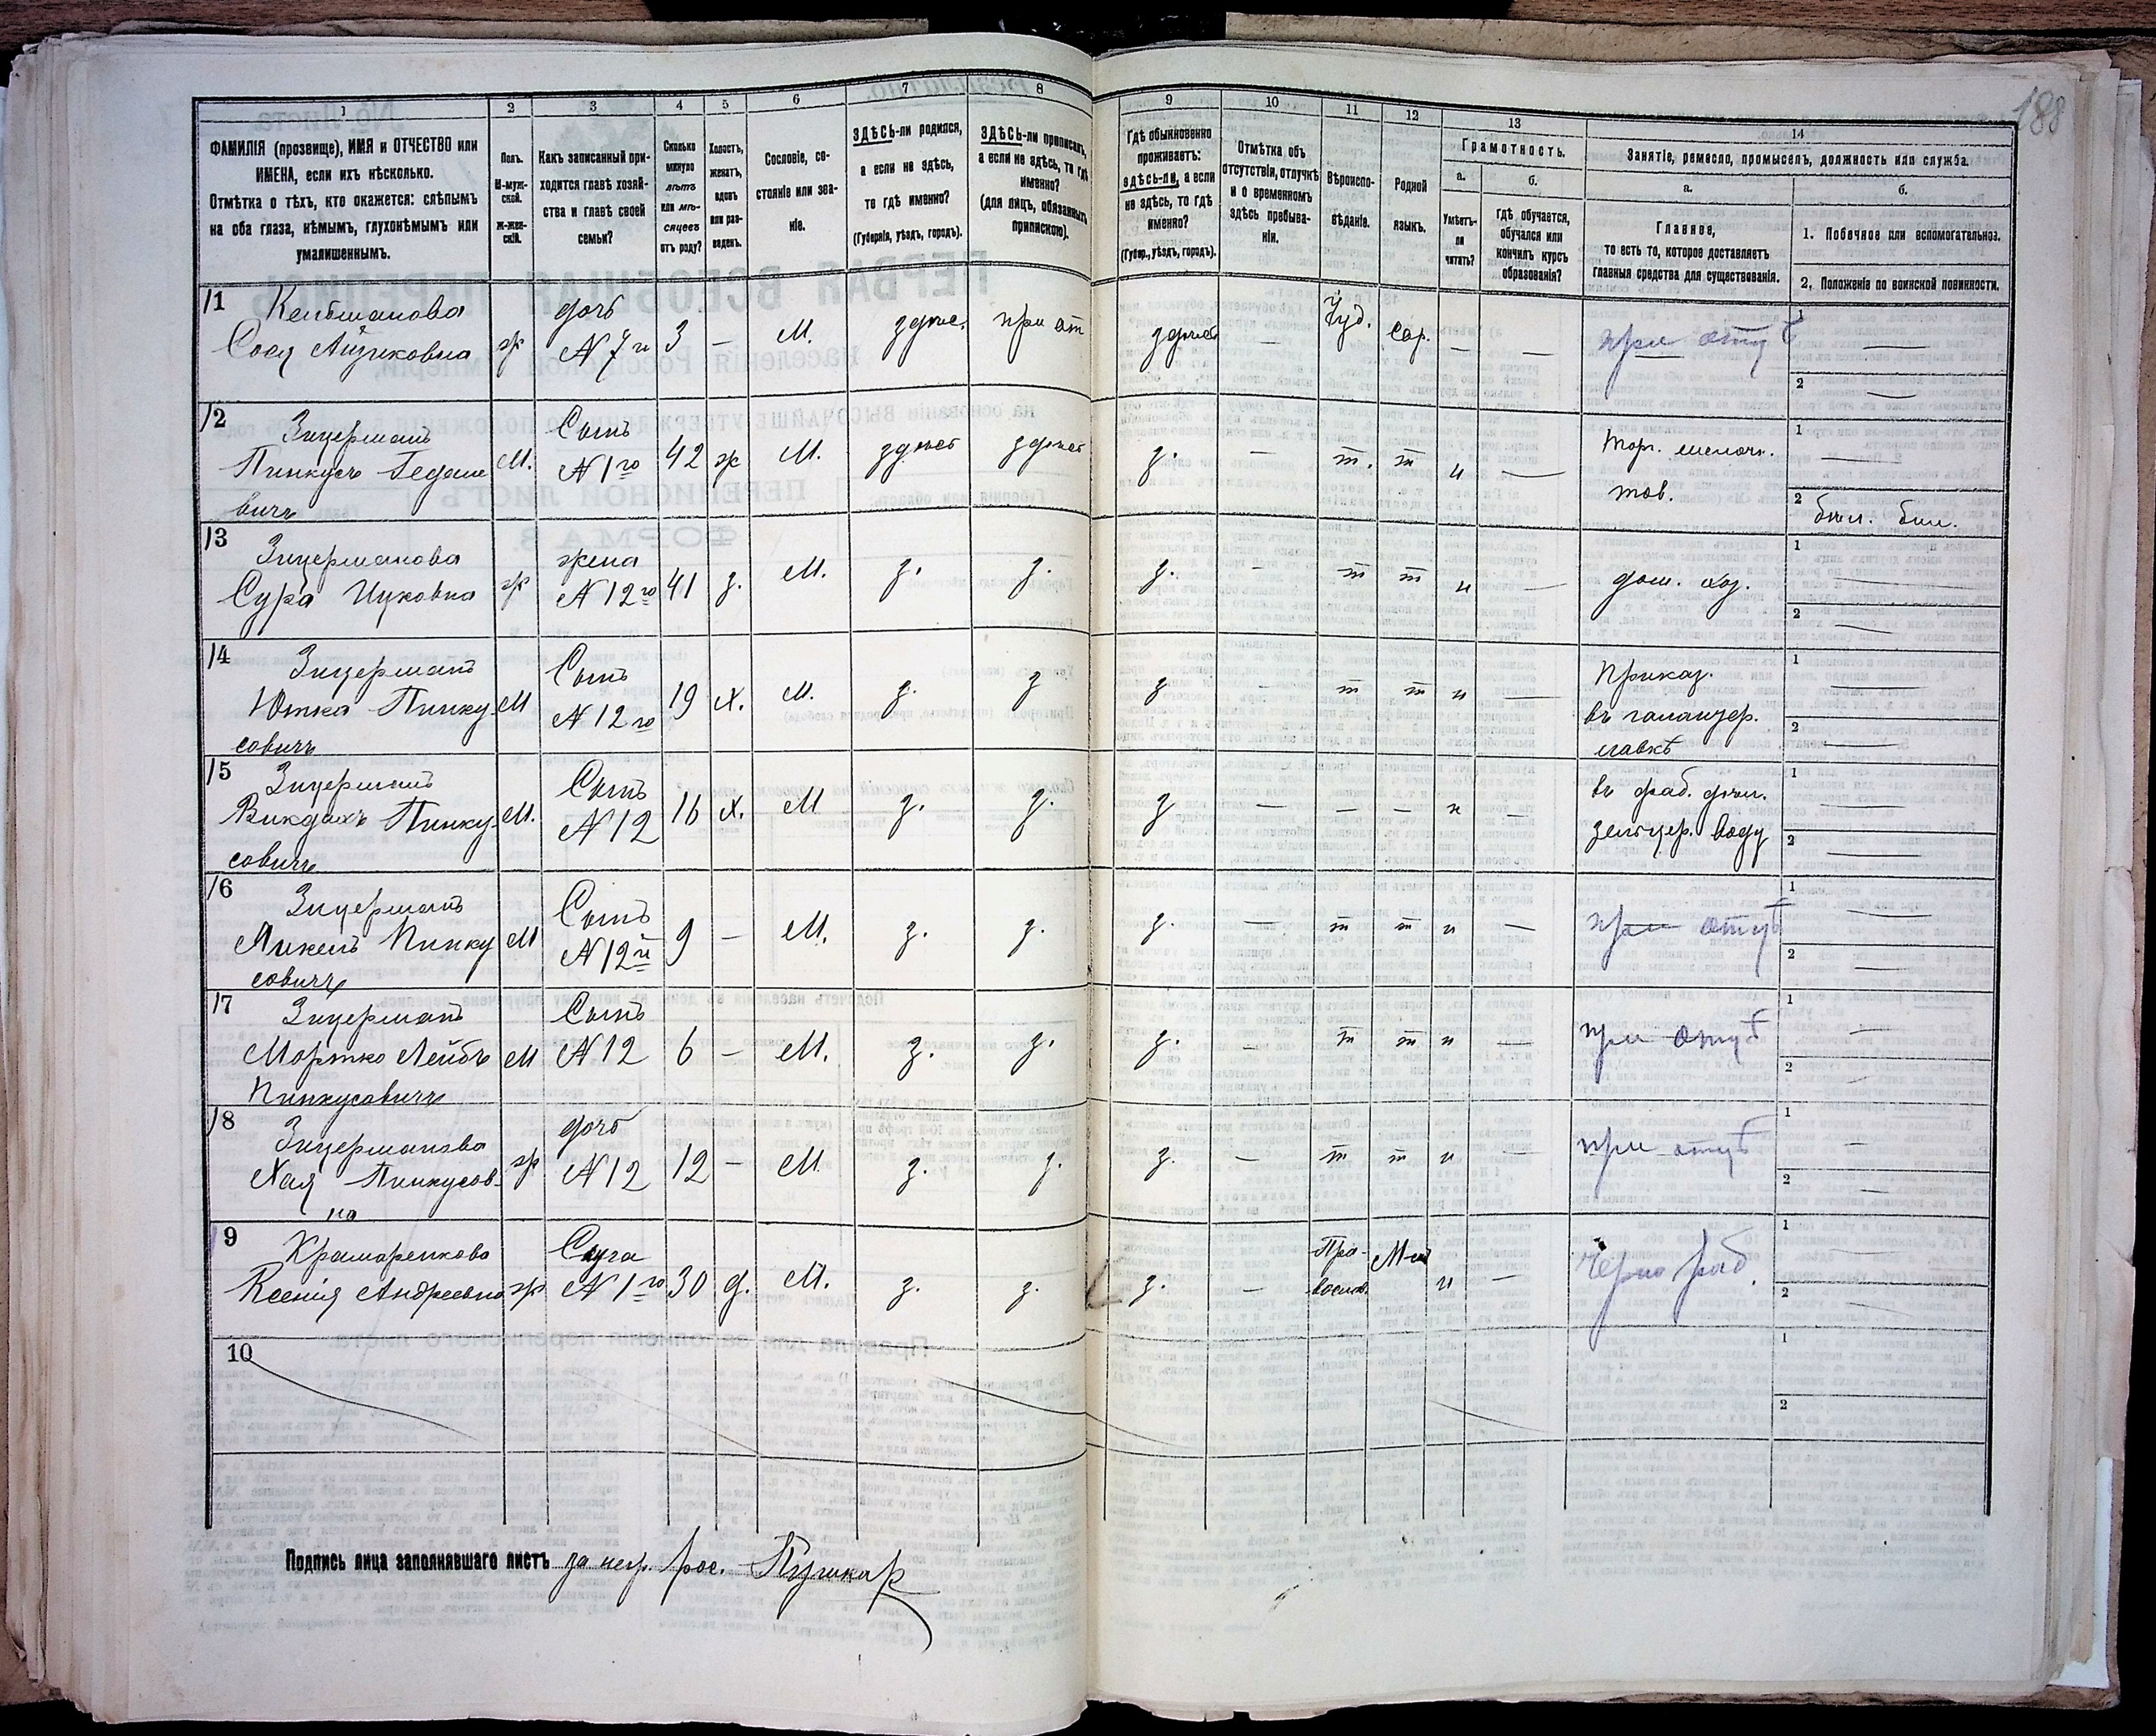 188
1 2 3 4 5 6 7 8 9 10 11 12 13 14
ФАМИЛІЯ (прозвище), ИМЯ и ОТЧЕСТВО или
ИМЕНА, если ихъ нѣсколько.
Отмѣтка о тѣхъ, кто окажется: слѣпымъ
на оба глаза, нѣмымъ, глухонѣмымъ или
умалишеннымъ.
Полъ.
М-муж-
ской.
ж-жен-
скій.
Какъ записанный при-
ходится главѣ хозяй-
ства и главѣ своей
семьи?
Сколько
минуло
лѣтъ
или мѣ-
сяцевъ
отъ роду?
Холостъ,
женатъ,
вдовъ
или раз-
веденъ.
Сословіе, со-
стояніе или зва-
ніе.
ЗДѢСЬ-ли родился,
а если не здѣсь,
то гдѣ именно?
(Губернія, уѣздъ, городъ).
ЗДѢСЬ-ли приписанъ,
а если не здѣсь, то гдѣ
именно?
(для лицъ, обязанныхъ
припискою).
Гдѣ обыкновенно
проживаетъ:
здѣсь-ли, а если
не здѣсь, то гдѣ
именно?
(Губер., уѣздъ, городъ).
Отмѣтка объ
отсутствіи, отлучкѣ
и о временномъ
здѣсь пребыва-
ніи.
Вѣроиспо-
вѣданіе.
Родной
языкъ.
Грамотность.
а.
Умѣетъ-
ли
читать?
б.
Гдѣ обучается,
обучался или
кончилъ курсъ
образованія?
Занятіе, ремесло, промыселъ, должность или служба.
а.
Главное,
то есть то, которое доставляетъ
главныя средства для существованія.
б.
1. Побочное или вспомогательное.
2. Положеніе по воинской повинности.
11 Кельманова
Сося Айзиковна
ж
дочь
№ 7й
3
—
М.
здѣс.
при от
здѣсь
—
Іуд.
Евр.
—
—
при отцѣ
1 —
2 —
12 Зицерманъ
Пинкусъ Гедале
вичъ
М.
Сынъ
№ 1го
42
ж
М.
здѣсь
здѣсь
з.
—
т.
т
н
—
Торг. мелочн.
тов.
1 —
2 бѣл. бил.
13 Зицерманова
Сура Ицковна
ж
жена
№ 12го
41
з.
М.
з.
з.
з.
—
т
т
н
—
дом. хоз.
1 —
2 —
14 Зицерманъ
Ютка Пинку-
совичъ
М
Сынъ
№ 12го
19
х.
М.
з.
з
з
-
т
т
н
—
Приказ.
въ галантер.
лавкѣ
1 —
2 —
15 Зицерманъ
Пинку-
совичъ
М.
Сынъ
№ 12
16
х.
М
з.
з.
з
—
—
—
н
—
въ фаб. дѣл.
зельтер. воду
1 —
2 —
16 Зицерманъ
Янкель Пинку
совичъ
М
Сынъ
№ 12й
9
—
М.
з.
з.
з.
—
т
т
н
—
при отцѣ
1 —
2 —
17 Зицерманъ
Мортко Лейбъ
Пинкусовичъ
М
Сынъ
№ 12
6
—
М.
з.
з.
з.
—
т
т
н
—
при отцѣ
1 —
2 —
18 Зицерманова
Хая Пинкусов-
на
ж
дочь
№ 12
12
—
М
з.
з.
з.
—
т
т
н
—
при отцѣ
1 —
2 —
19 Крамаренкова
Ксенія Андреевна
ж
Слуга
№ 1го
30
д.
М.
з.
з.
з.
—
Пра-
восл.
М-ій
н
—
черно раб.
1 —
2 —
10
1
2
Подпись лица заполнявшаго листъ за негр. рос. Пушкар